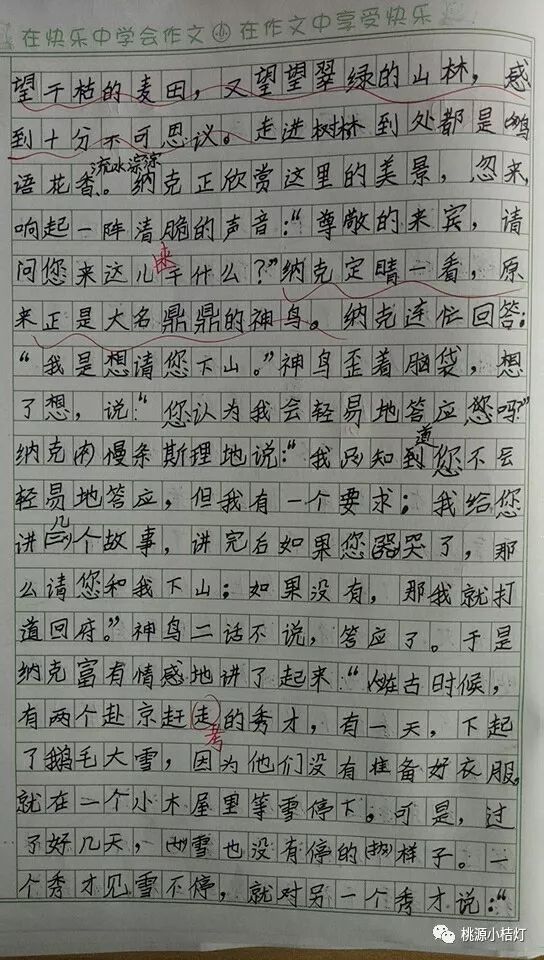 在快乐中学会作文 小 在作文中享受快乐
望干枯的麦田，又望望翠绿的山林，感
到十分不可思议。走进树林到处都是鸟
流水淙淙
语花香。纳克正欣赏这里的美景，忽来，
响起一阵清脆的声音：“尊敬的来宾，请
问您来这儿干什么？”纳克定晴一看，原
来
来正是大名鼎鼎的神鸟。纳克连忙回答：
“我是想请您下山。”神鸟歪着脑袋，想
了想，说：“您认为我会轻易地答应您吗？”
道
纳克慢条斯理地说：“我知到您不会
轻易地答应，但我有一个要求；我给您
几
讲个故事，讲完后如果您哭了，那
么请您和我下山；如果没有，那我就打
道回府。”神鸟二话不说，答应了。于是
纳克富有情感地讲了起来“在古时候，
有两个赴京赶走的秀才，有一天，下起
考
了鹅毛大雪，因为他们没有准备好衣服，
就在一个小木屋里等雪停下。可是，过
了好几天，雪也没有停的样子。一
个秀才见雪不停，就对另一个秀才说：“
桃源小桔灯